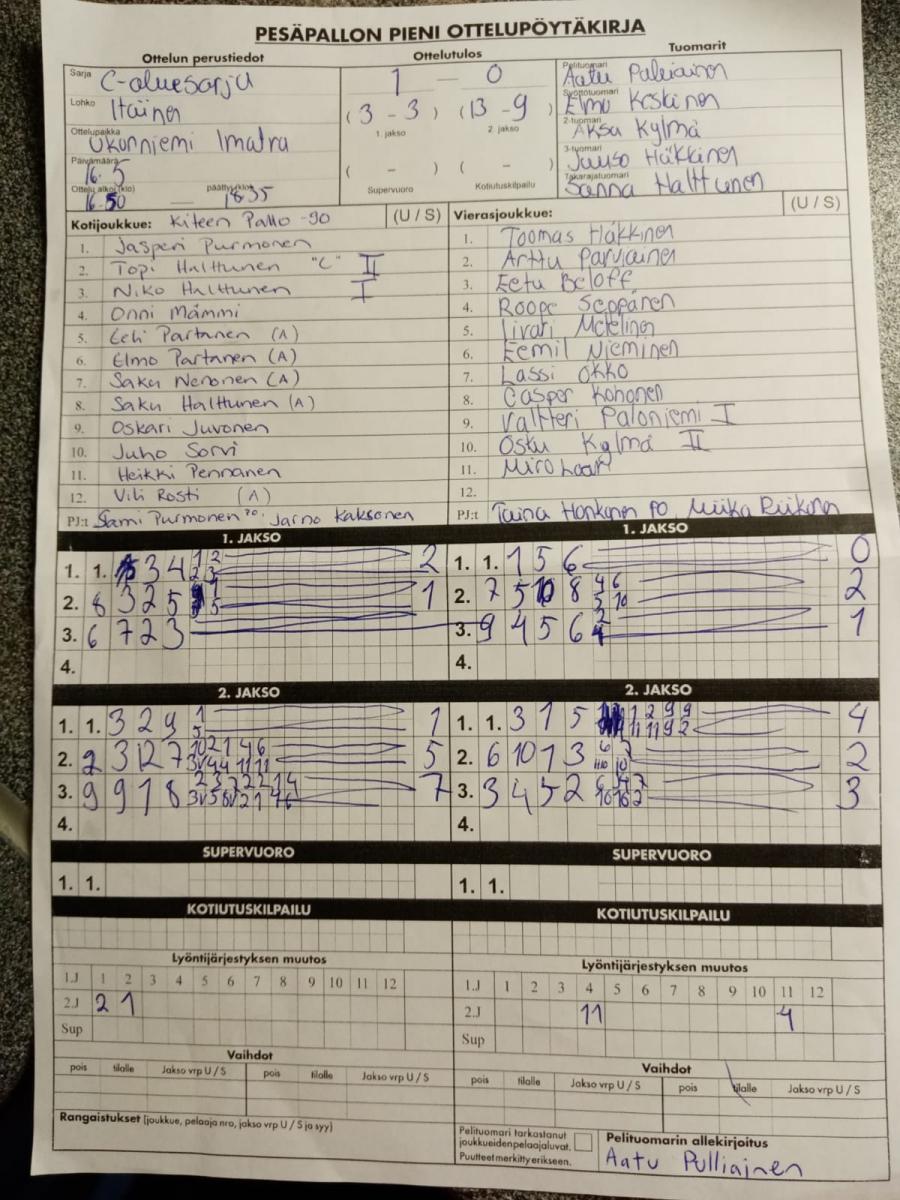 PESÄPALLON PIENI OTTELUPÖYTÄKIRJA
Ottelun perustiedot
Ottelutulos
Tuomarit
Sarja C-aluesarja
Lohko Itäinen
Ottelupaikka Ukonniemi Imatra
Päivämäärä 16.5
Ottelu alkoi (klo) 16.50 — päättyi (klo) 18.35
1 — 0
(3 - 3) (13 - 9)
1. jakso 2. jakso
( - ) ( - )
Supervuoro Kotiutuskilpailu
Pelituomari Aatu
Syöttötuomari Elmo Keskinen
2-tuomari Aksa Kylmä
3-tuomari Häkkinen
Takarajatuomari Sanna Halttunen
Kotijoukkue: Kiteen Pallo -90 (U / S)
1. Jasperi Purmonen
2. Topi Halttunen "C" II
3. Niko Halttunen I
4. Onni Mämmi
5. Eeli Partanen (A)
6. Elmo Partanen (A)
7. Saku Nenonen (A)
8. Saku Halttunen (A)
9. Oskari Juvonen
10. Juho Sorvi
11. Heikki Pennanen
12. Vili Rosti (A)
PJ:t Sami Purmonen Jarno Kaksonen
Vierasjoukkue: (U / S)
1. Toomas Häkkinen
2. Arttu Parviainen
3. Eetu Beloff
4. Roope Seppänen
5. Iivari
6. Eemil Nieminen
7. Lassi Okko
8. Casper Kohonen
9. Valtteri Paloniemi I
10. Kylmä II
11. Miro
12.
PJ:t Taina Honkanen PO, Miika
1. JAKSO
1. 1. 3 4 1 2 2 3 2
2. 8 3 2 5 1
3. 6 7 2 3
4.
1. JAKSO
1. 1. 1 5 6 0
2. 7 5 10 8 4 6 5 10 2
3. 9 4 5 6 2 1
4.
2. JAKSO
1. 1. 3 2 9 1 5 1
2. 2 3 12 7 5
3. 9 9 1 8 7
4.
2. JAKSO
1. 1. 3 1 5 1 2 9 9 11 11 9 2 4
2. 6 10 1 3 2
3. 3 4 5 2 3
4.
SUPERVUORO
1. 1.
SUPERVUORO
1. 1.
KOTIUTUSKILPAILU
KOTIUTUSKILPAILU
Lyöntijärjestyksen muutos
1.J 1 2 3 4 5 6 7 8 9 10 11 12
2.J 2 1
Sup
Lyöntijärjestyksen muutos
1.J 1 2 3 4 5 6 7 8 9 10 11 12
2.J 11 4
Sup
Vaihdot
pois tilalle Jakso vrp U / S pois tilalle Jakso vrp U / S
Vaihdot
pois tilalle Jakso vrp U / S pois tilalle Jakso vrp U / S
Rangaistukset (joukkue, pelaaja nro, jakso vrp U / S ja syy)
Pelituomari tarkastanut
joukkueidenpelaajaluvat.
Puutteet merkitty erikseen.
Pelituomarin allekirjoitus
Aatu Pulliainen